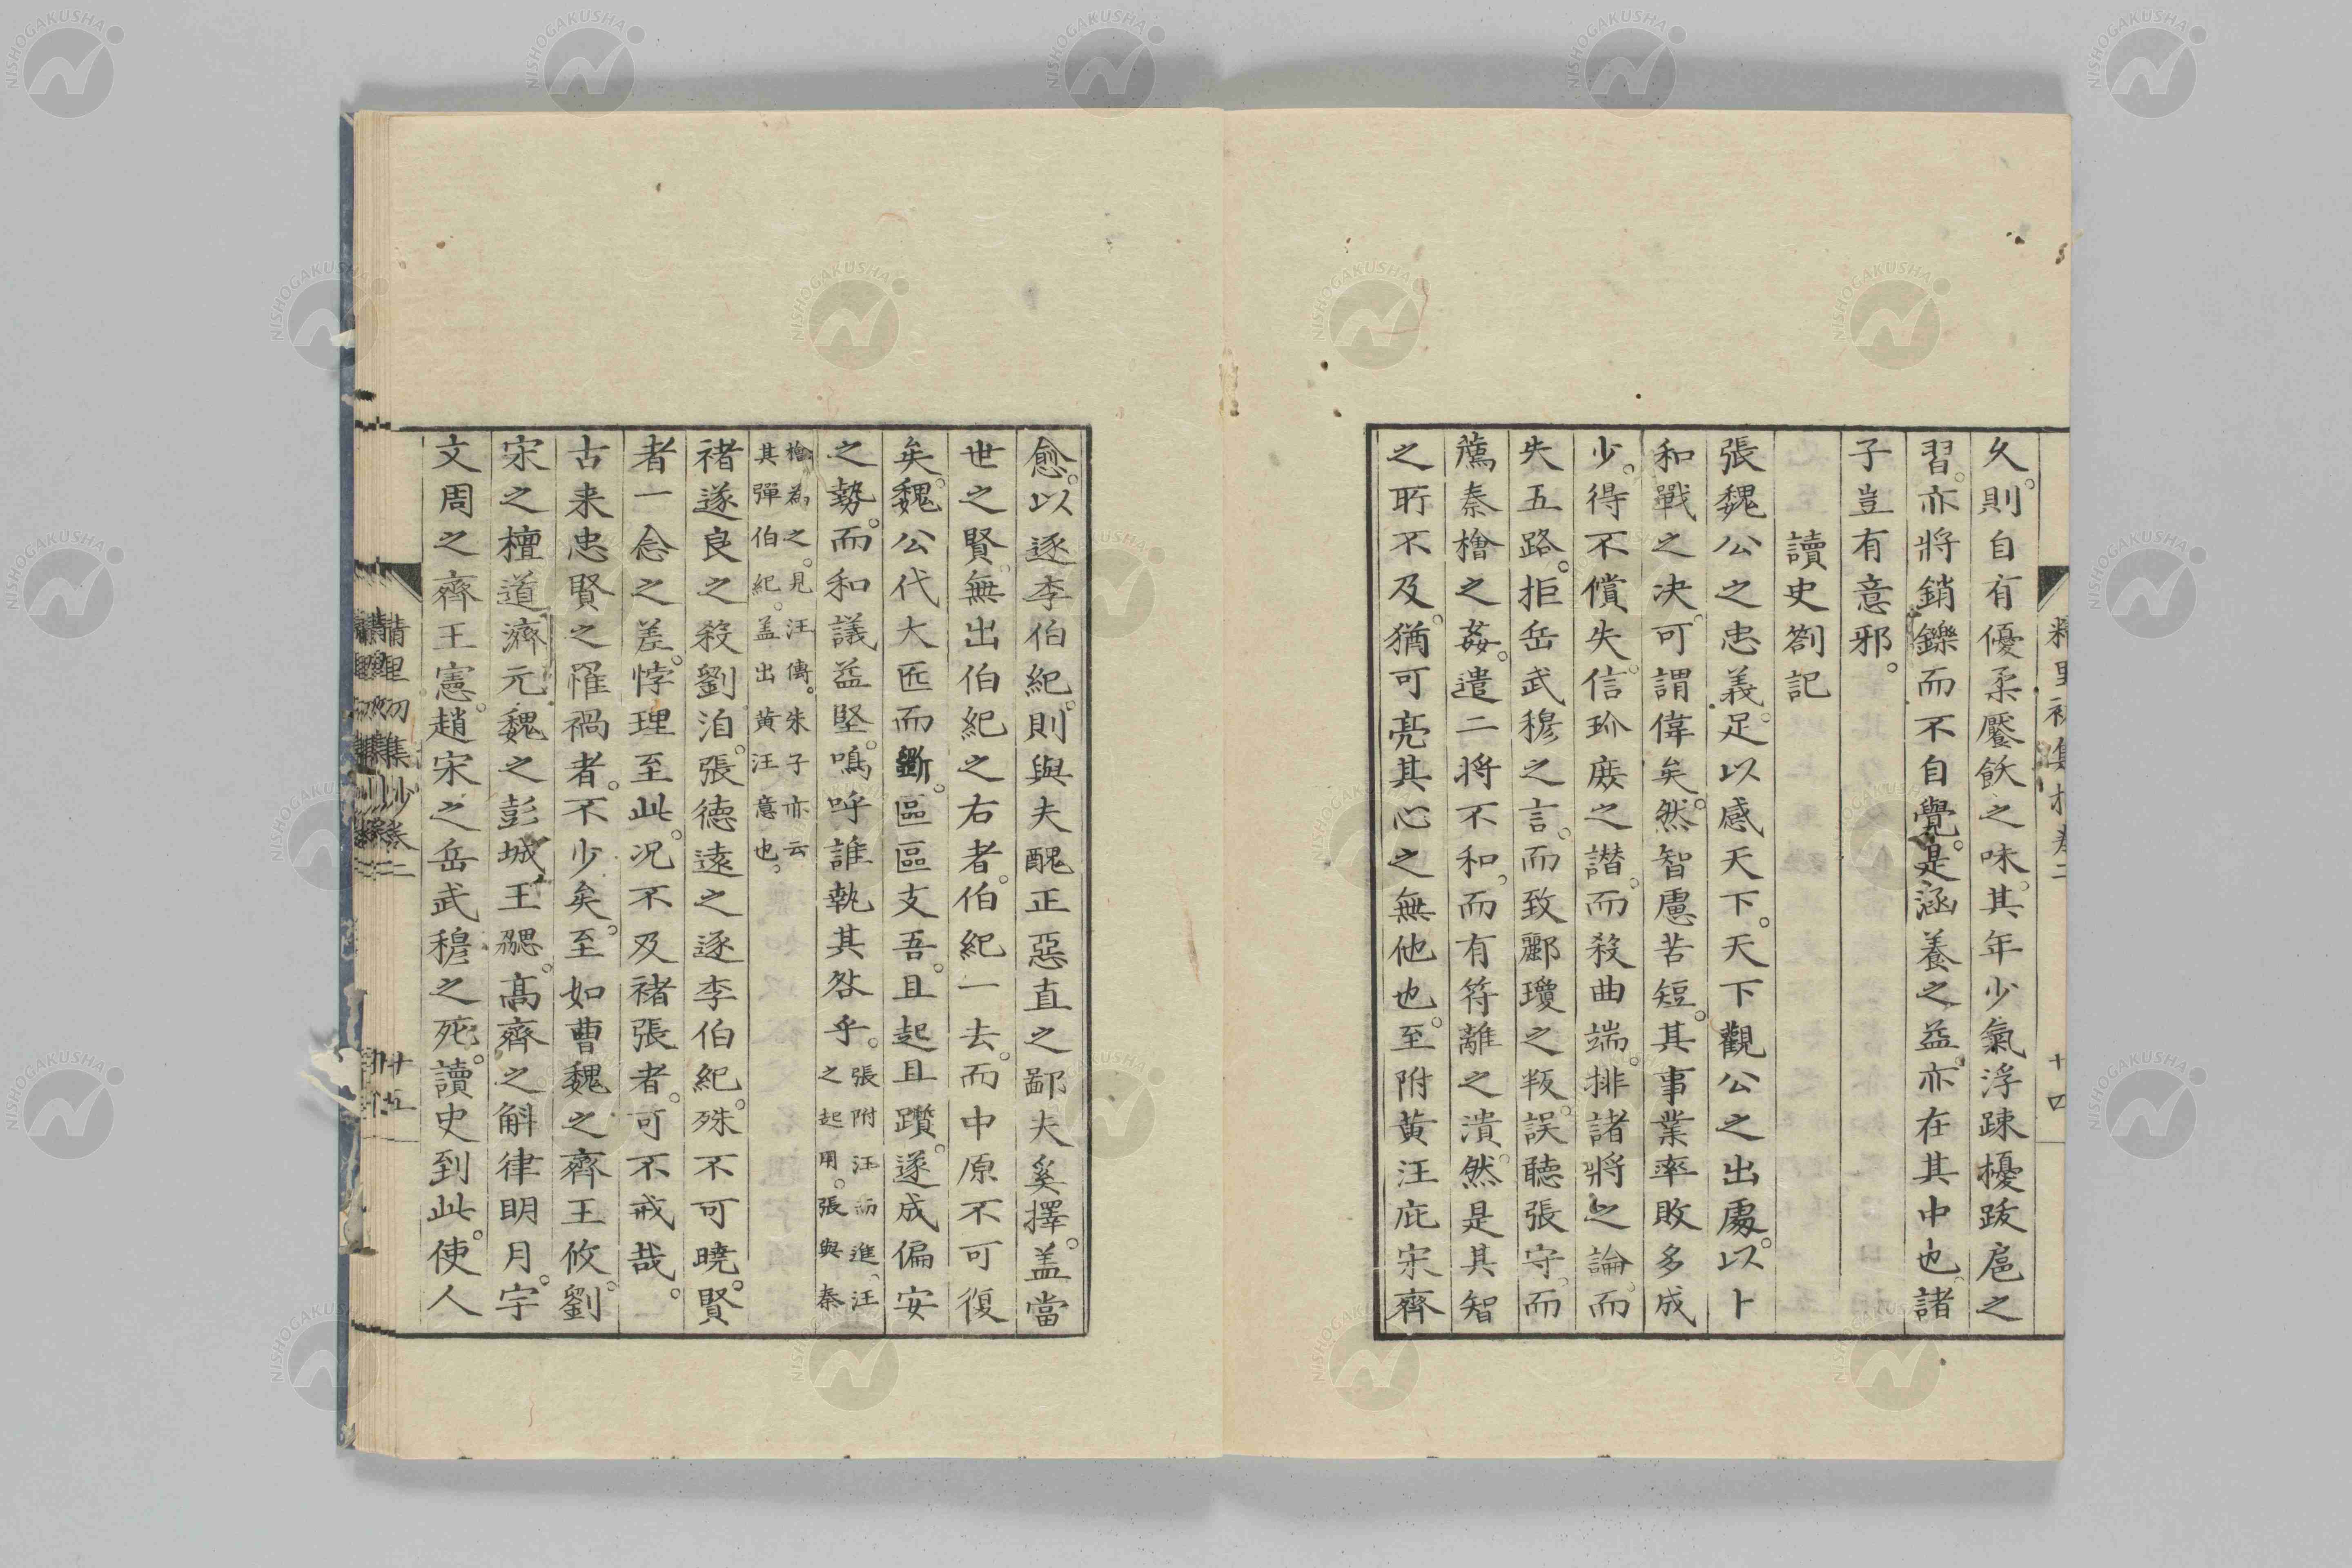 久則自有優柔饜飫之味。其年少氣浮踈擾跋扈之
習。亦將銷鑠而不自覺。是涵養之益。亦在其中也。諸
子豈有意邪。
讀史劄記
張魏公之忠義。足以感天下。天下觀公之出處。以卜
和戰之决。可謂偉矣。然智慮苦短。其事業率敗多成
少。得不償失。信玠庻之譖。而殺曲端。排諸將之論。而
失五路。拒岳武穆之言。而致酈瓊之叛。誤聽張守。而
薦秦檜之姦。遣二将不和。而有符離之潰。然是其智
之所不及。猶可亮其心之無他也。至附黄汪庇宋齊
愈。以逐李伯紀。則與夫醜正惡直之鄙夫奚擇。盖當
世之賢。無出伯紀之右者。伯紀一去。而中原不可復
矣。魏公代大匠而斲。區區支吾。且起且躓。遂成偏安
之勢。而和議益堅。嗚呼誰執其咎乎。張附汪而進。汪
之起用。張與秦
檜為之。見汪傳。朱子亦云
其彈伯紀。盖出黄汪意也。
褚遂良之殺劉洎。張德遠之逐李伯紀。殊不可曉。賢
者一念之差。悖理至此。况不及褚張者。可不戒哉。
古来忠賢之罹禍者。不少矣。至如曹魏之齊王攸。劉
宋之檀道濟。元魏之彭城王勰。髙齊之斛律明月。宇
文周之齊王憲。趙宋之岳武穆之死。讀史到此。使人
十四
十五
NISHOGAKUSHA